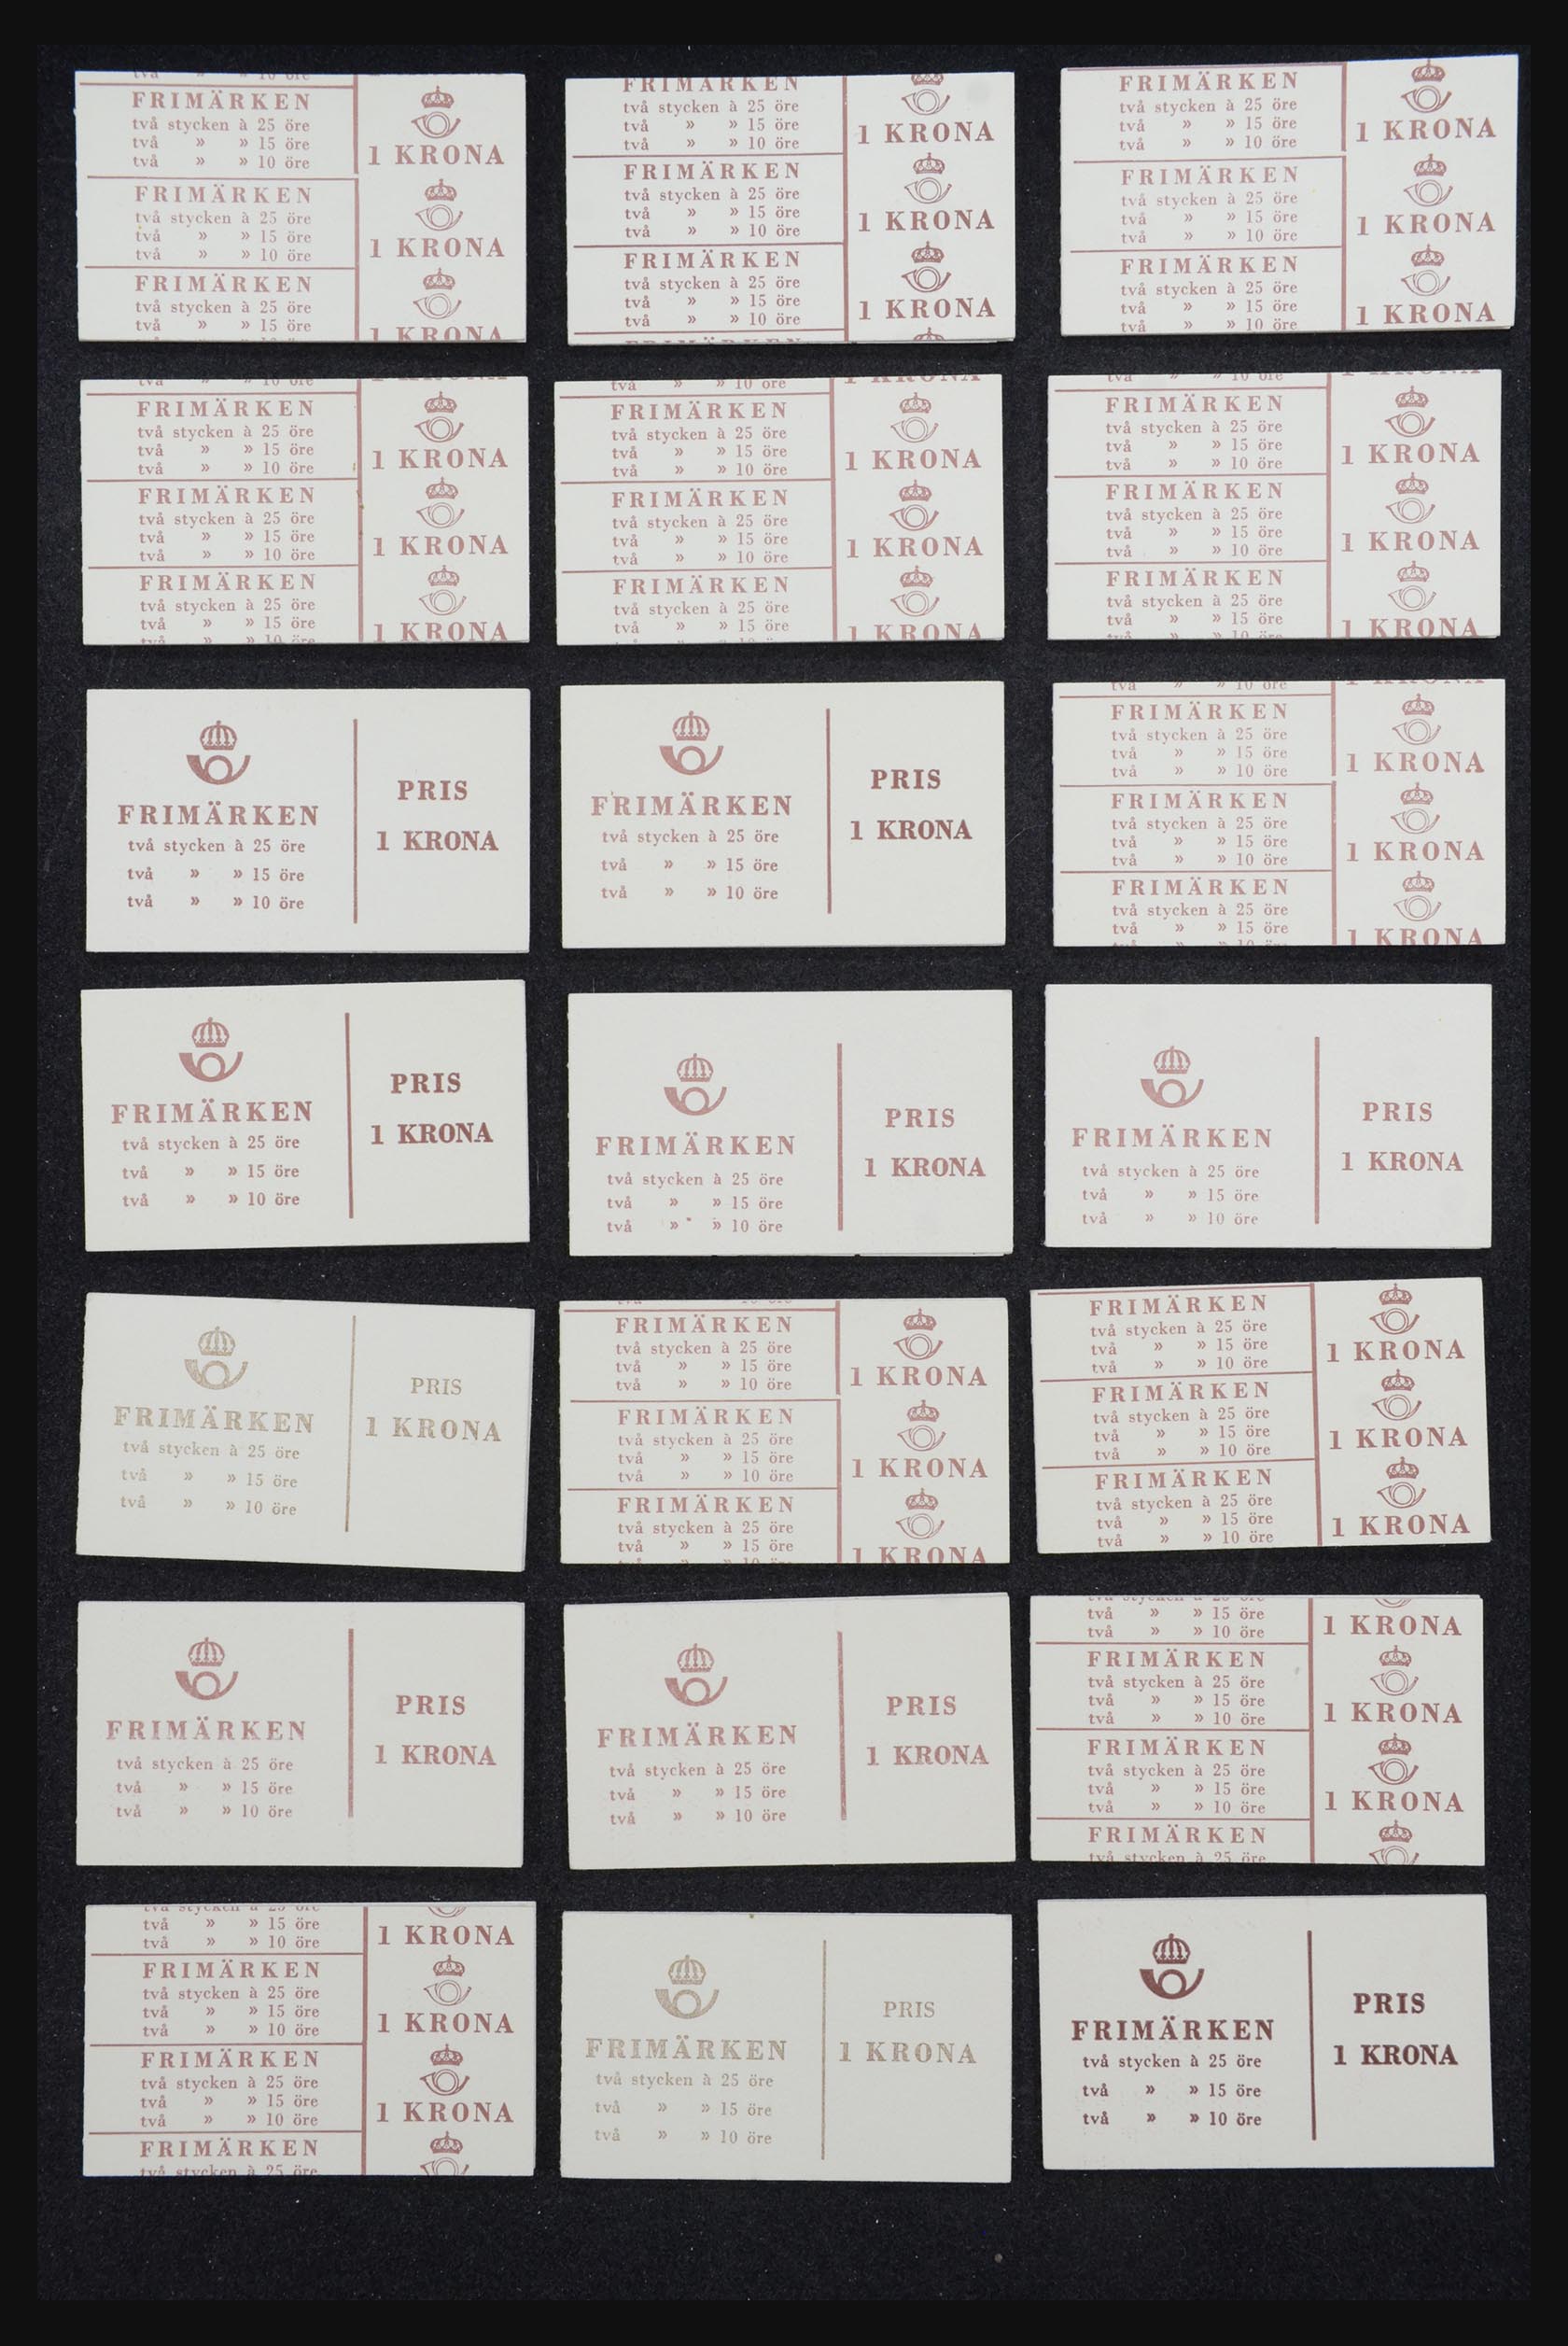 FRIMÄRKEN
två stycken à 25 öre
två » » 15 öre
två » » 10 öre
1 KRONA
FRIMÄRKEN
två stycken à 25 öre
två » » 15 öre
två » » 10 öre
1 KRONA
FRIMÄRKEN
två stycken à 25 öre
två » » 15 öre
1 KRONA
FRIMÄRKEN
två stycken à 25 öre
två » » 15 öre
två » » 10 öre
1 KRONA
FRIMÄRKEN
två stycken à 25 öre
två » » 15 öre
två » » 10 öre
1 KRONA
FRIMÄRKEN
två stycken à 25 öre
två » » 15 öre
två » » 10 öre
1 KRONA
FRIMÄRKEN
två stycken à 25 öre
två » » 15 öre
två » » 10 öre
1 KRONA
FRIMÄRKEN
två stycken à 25 öre
två » » 15 öre
två » » 10 öre
1 KRONA
FRIMÄRKEN
två stycken à 25 öre
två » » 15 öre
två » » 10 öre
1 KRONA
två » » 10 öre
FRIMÄRKEN
två stycken à 25 öre
två » » 15 öre
två » » 10 öre
1 KRONA
FRIMÄRKEN
två stycken à 25 öre
två » » 15 öre
två » » 10 öre
1 KRONA
FRIMÄRKEN
två stycken à 25 öre
två » » 15 öre
två » » 10 öre
1 KRONA
två » » 10 öre
FRIMÄRKEN
två stycken à 25 öre
två » » 15 öre
två » » 10 öre
1 KRONA
FRIMÄRKEN
två stycken à 25 öre
två » » 15 öre
två » » 10 öre
1 KRONA
FRIMÄRKEN
två stycken à 25 öre
två » » 15 öre
1 KRONA
två » » 10 öre
FRIMÄRKEN
två stycken à 25 öre
två » » 15 öre
två » » 10 öre
1 KRONA
FRIMÄRKEN
två stycken à 25 öre
två » » 15 öre
två » » 10 öre
1 KRONA
FRIMÄRKEN
två stycken à 25 öre
två » » 15 öre
två » » 10 öre
1 KRONA
FRIMÄRKEN
två stycken à 25 öre
två » » 15 öre
två » » 10 öre
PRIS
1 KRONA
FRIMÄRKEN
två stycken à 25 öre
två » » 15 öre
två » » 10 öre
PRIS
1 KRONA
två » » 10 öre
FRIMÄRKEN
två stycken à 25 öre
två » » 15 öre
två » » 10 öre
1 KRONA
FRIMÄRKEN
två stycken à 25 öre
två » » 15 öre
två » » 10 öre
1 KRONA
FRIMÄRKEN
två stycken à 25 öre
två » » 15 öre
1 KRONA
FRIMÄRKEN
två stycken à 25 öre
två » » 15 öre
två » » 10 öre
PRIS
1 KRONA
FRIMÄRKEN
två stycken à 25 öre
två » » 15 öre
två » » 10 öre
PRIS
1 KRONA
FRIMÄRKEN
två stycken à 25 öre
två » » 15 öre
två » » 10 öre
PRIS
1 KRONA
FRIMÄRKEN
två stycken à 25 öre
två » » 15 öre
två » » 10 öre
PRIS
1 KRONA
FRIMÄRKEN
två stycken à 25 öre
två » » 15 öre
två » » 10 öre
1 KRONA
FRIMÄRKEN
två stycken à 25 öre
två » » 15 öre
två » » 10 öre
1 KRONA
FRIMÄRKEN
två stycken à 25 öre
två » » 15 öre
1 KRONA
FRIMÄRKEN
två stycken à 25 öre
två » » 15 öre
två » » 10 öre
1 KRONA
FRIMÄRKEN
två stycken à 25 öre
två » » 15 öre
två » » 10 öre
1 KRONA
FRIMÄRKEN
två stycken à 25 öre
två » » 15 öre
två » » 10 öre
1 KRONA
FRIMÄRKEN
två stycken à 25 öre
två » » 15 öre
två » » 10 öre
PRIS
1 KRONA
FRIMÄRKEN
två stycken à 25 öre
två » » 15 öre
två » » 10 öre
PRIS
1 KRONA
två » » 15 öre
två » » 10 öre
1 KRONA
FRIMÄRKEN
två stycken à 25 öre
två » » 15 öre
två » » 10 öre
1 KRONA
FRIMÄRKEN
två stycken à 25 öre
två » » 15 öre
två » » 10 öre
1 KRONA
FRIMÄRKEN
två stycken à 25 öre
två » » 15 öre
två » » 10 öre
1 KRONA
FRIMÄRKEN
två stycken à 25 öre
två » » 15 öre
två » » 10 öre
1 KRONA
FRIMÄRKEN
två stycken à 25 öre
två » » 15 öre
två » » 10 öre
1 KRONA
FRIMÄRKEN
två stycken à 25 öre
FRIMÄRKEN
två stycken à 25 öre
två » » 15 öre
två » » 10 öre
PRIS
1 KRONA
FRIMÄRKEN
två stycken à 25 öre
två » » 15 öre
två » » 10 öre
PRIS
1 KRONA